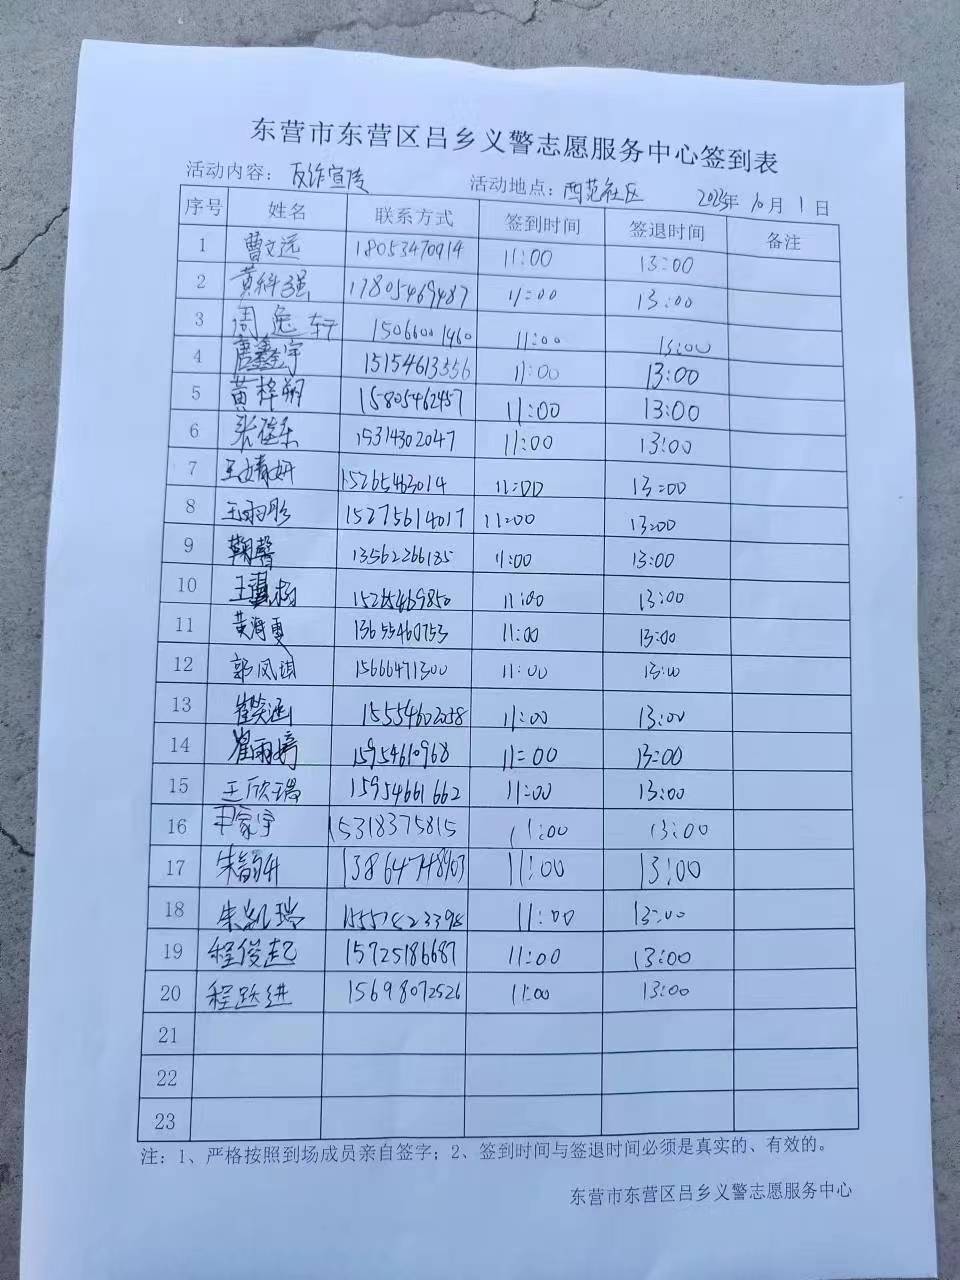 东营市东营区吕乡义警志愿服务中心签到表
活动内容：反诈宣传 活动地点：西范社区 2023年 10月 1日
序号 姓名 联系方式 签到时间 签退时间 备注
1 曹文远 18053470914 11:00 13:00
2 黄科强 17805469487 11:00 13:00
3 周逸轩 15066001960 11:00 13:00
4 唐鑫宇 15154613556 11:00 13:00
5 黄梓朔 15805462457 11:00 13:00
6 15314302047 11:00 13:00
7 王婧妍 15265463014 11:00 13:00
8 王雨彤 15275614017 11:00 13:00
9 鞠馨 13562266185 11:00 13:00
10 11:00 13:00
11 黄海夏 13655460753 11:00 13:00
12 郭凤琪 15666471300 11:00 13:00
13 崔笑涵 15554602058 11:00 13:00
14 翟雨婷 15954610968 11:00 13:00
15 王欣瑞 15954661662 11:00 13:00
16 尹家宇 15318375815 11:00 13:00
17 朱韵升 11:00 13:00
18 朱凯瑞 11:00 13:00
19 程俊起 15725186687 11:00 13:00
20 程跃进 15698072526 11:00 13:00
21
22
23
注：1、严格按照到场成员亲自签字；2、签到时间与签退时间必须是真实的、有效的。
东营市东营区吕乡义警志愿服务中心